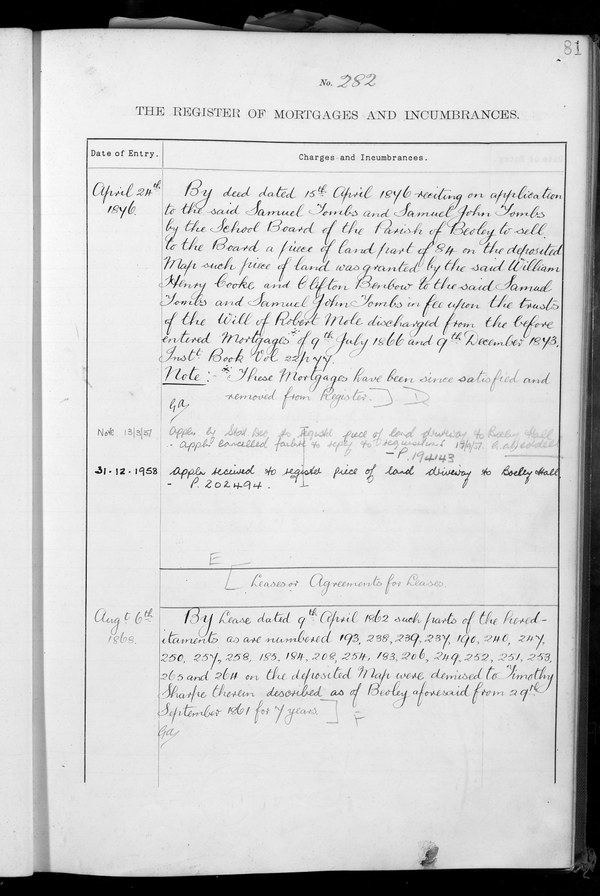 81
No. 282
THE REGISTER OF MORTGAGES AND INCUMBRANCES.
Date of Entry.
Charges and Incumbrances.
April 24th
1876.
By deed dated 15th April 1876 reciting on application
to the said Samuel Tombs and Samuel John Tombs
by the School Board of the Parish of Beoley to sell
to the Board a piece of land part of 84 on the deposited
Map such piece of land was granted by the said William
Henry Cooke and Clifton Benbow to the said Samuel
Tombs and Samuel John Tombs in fee upon the trusts
of the Will of Robert Mole discharged from the before
entered Mortgages* of 9th July 1866 and 9th December 1873.
Inst. Book Vol 22 p 77.
Note :- * These Mortgages have been since satisfied and
removed from Register. ] D
Note 13/3/57
Appln by to register piece of land driveway to Beoley Hall
- appln cancelled failure to reply to requisitions
- P. 19443
31.12.1958
Appln received to register piece of land driveway to Beoley Hall
- P. 202494.
E
[ Leases or Agreements for Leases.
Augt 6th
1868.
By Lease dated 9th April 1862 such parts of the hered-
itaments as are numbered 193, 238, 239, 237, 190, 240, 247,
250, 257, 258, 185, 184, 208, 254, 183, 206, 249, 252, 251, 253,
265 and 264 on the deposited Map were demised to Timothy
Sharpe therein described as of Beoley aforesaid from 29th
September 1861 for 7 years ] F